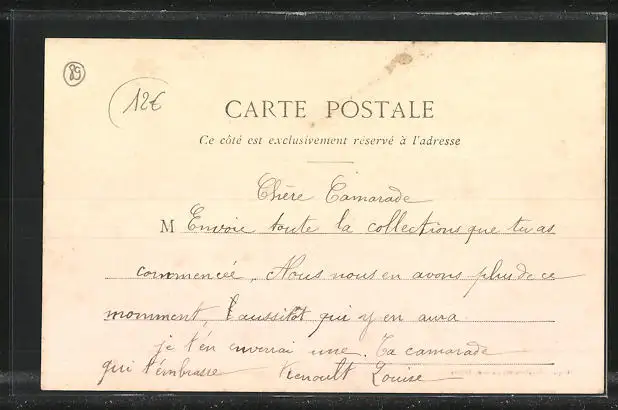 89
12€
CARTE POSTALE
Ce côté est exclusivement réservé à l'adresse
Chère Camarade
M Envoie toute la collections que tu as
commencée, Nous nous en avons plus de ce
momment, aussitot qui y en aura
je t'en enverrai une. Ta camarade
qui t'embrasse Renoult Louise